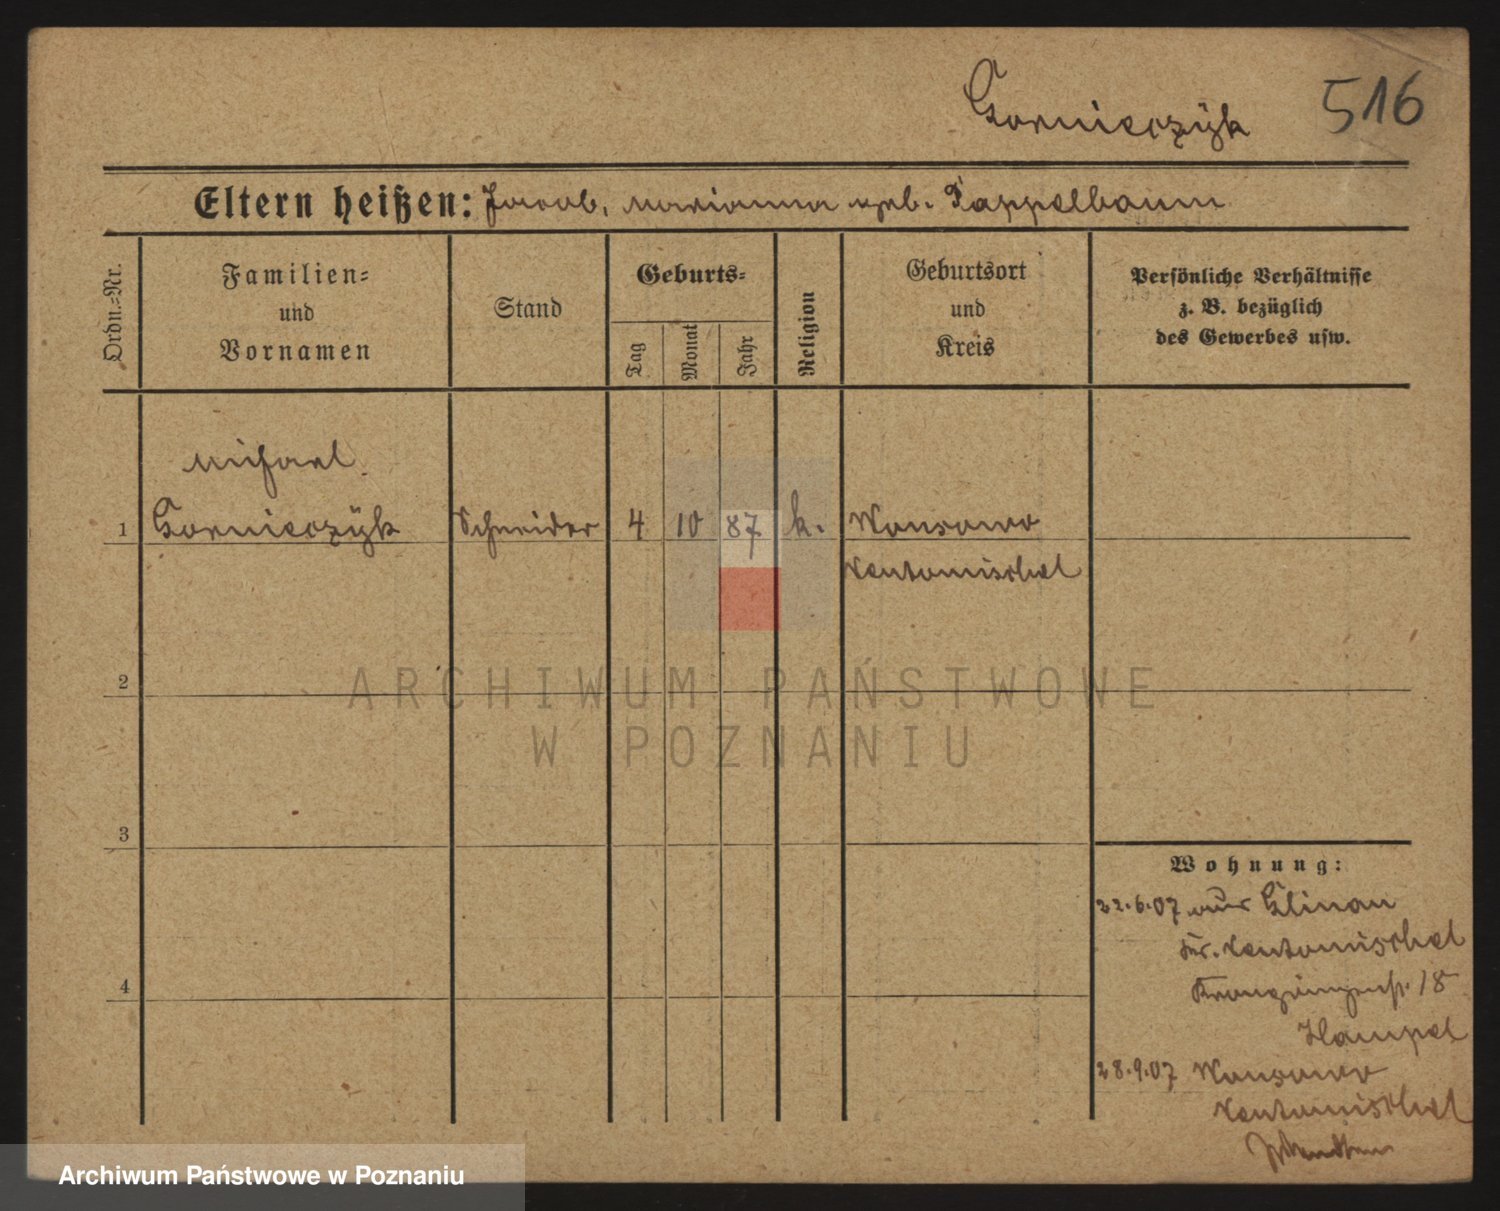 Gornierzÿk
516
Eltern heißen: Jacob, Marianna geb. Pappelbaum
Ordn.-Nr.
Familien-
und
Vornamen
Stand
Geburts-
Tag
Monat
Jahr
Religion
Geburtsort
und
Kreis
Persönliche Verhältnisse
z. B. bezüglich
des Gewerbes usw.
Michael
1 Gornierzÿk Schneider 4 10 87 k. Wonsowo
Neutomischel
2
ARCHIWUM PAŃSTWOWE
W POZNANIU
3
Wohnung:
22.6.07 aus Glinau
Kr. Neutomischel
4
Kronprinzenst. 18
Hampel
28.9.07 Wonsowo
Neutomischel
Archiwum Państwowe w Poznaniu